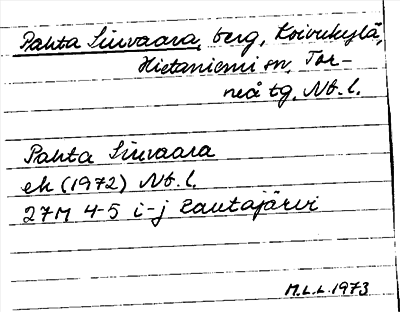 Pahta Siuvaara, berg, Koivukylä,
Hietaniemi sn, Tor-
neå tg, Nb. l.
Pahta Siuvaara
ek (1972) Nb. l.
27M 4-5 i-j Rautajärvi
M.L.L. 1973